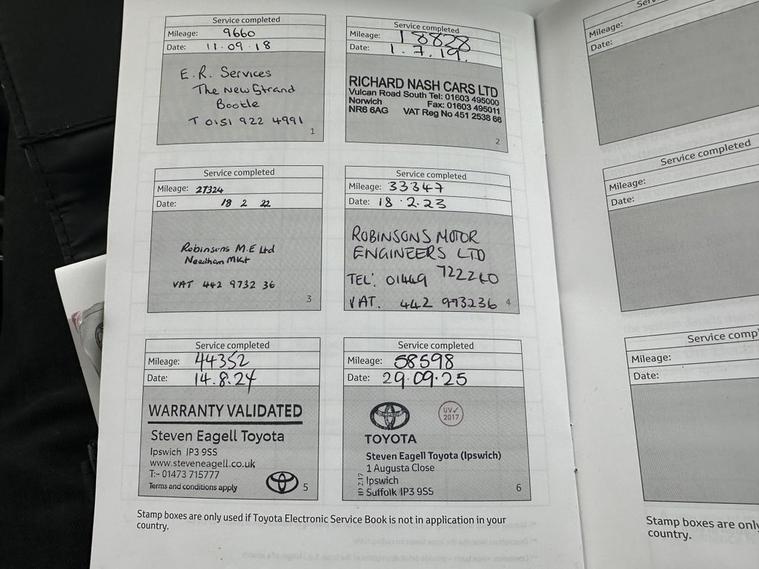 Service completed
Mileage: 9660
Date: 11.09.18
E.R. Services
The New Strand
Bootle
T 0151 922 4991
1
Service completed
Mileage: 18828
Date: 1.7.19.
RICHARD NASH CARS LTD
Vulcan Road South Tel: 01603 495000
Norwich Fax: 01603 495011
NR6 6AG VAT Reg No 451 2538 66
2
Service completed
Mileage: 27324
Date: 18 2 22
Robinsons M.E Ltd
Needham Mkt
VAT 442 9732 36
3
Service completed
Mileage: 33347
Date: 18.2.23
ROBINSONS MOTOR
ENGINEERS LTD
TEL: 01449 722240
VAT. 442 973236
4
Service completed
Mileage: 44352
Date: 14.8.24
WARRANTY VALIDATED
Steven Eagell Toyota
Ipswich IP3 9SS
www.steveneagell.co.uk
T:- 01473 715777
Terms and conditions apply
5
Service completed
Mileage: 58598
Date: 29.09.25
UV✓
2017
TOYOTA
Steven Eagell Toyota (Ipswich)
1 Augusta Close
Ipswich
Suffolk IP3 9SS
6
Stamp boxes are only used if Toyota Electronic Service Book is not in application in your
country.
Mileage:
Date:
Service completed
Mileage:
Date:
Service comp
Mileage:
Date:
Stamp boxes are only
country.